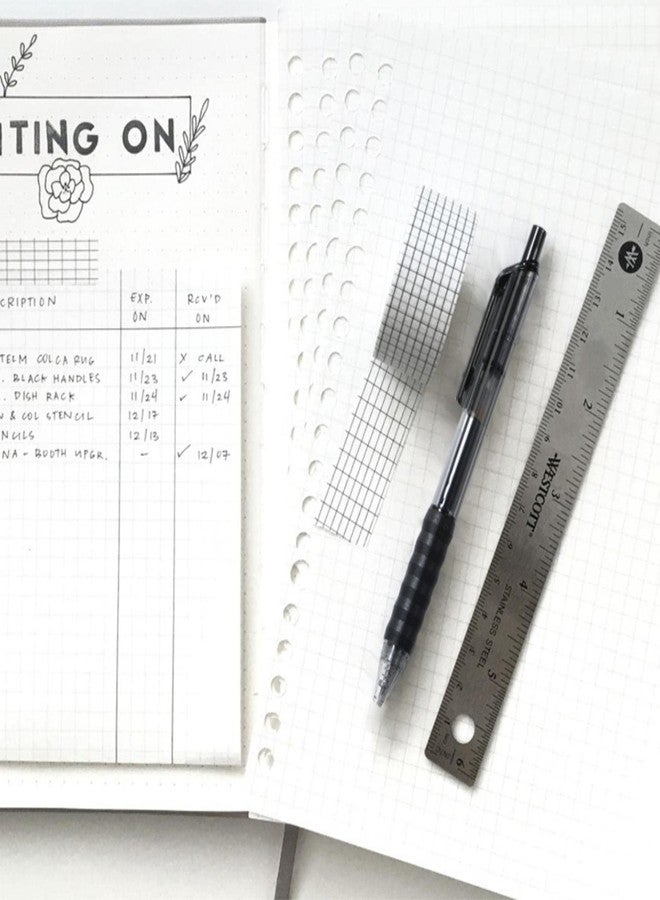 ITING ON
CRIPTION EXP. ON RCV'D ON
TELM COLCA RUG 11/21 X CALL
. BLACK HANDLES 11/23 ✓ 11/23
. DISH RACK 11/24 ✓ 11/24
& COL STENCIL 12/17
NCILS 12/13
NA - BOOTH UPGR. - ✓ 12/07
W
inch
WESTCOTT®
STAINLESS STEEL
1
2
3
4
5
6
15
14
13
11
10